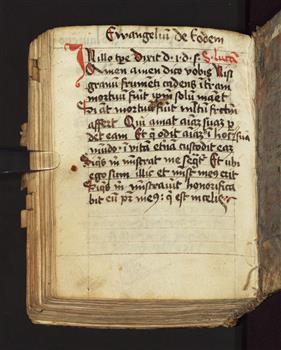 Ewangeliū de eodem
In illo tpe dixit d·i·d·s· S. lucā
Amen amen dico vobis Nisi
granū frumēti cadens ī tram
mortuū fuit ipm solū manet
Si at mortuū fuit multū fructū
affert Qui amat aīaz suaz p
det eam Et q̄ odit aīaz ī hoc
mūdo · ī vitā etnā custodit eaz
Siqs m mīstrat me seqt Et ubi
ego sum illic et mīst me9 erit
Siqs m mīstravit honorifica
bit eū pr me9 q̄ est in celis